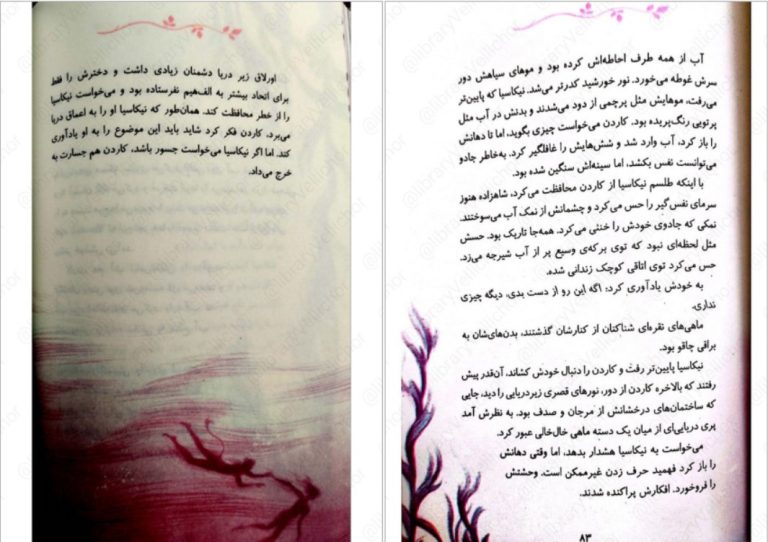 آب از همه طرف احاطه‌اش کرده بود و موهای سیاهش دور
سرش غوطه می‌خورد. نور خورشید کدرتر می‌شد. نیکاسیا که پایین‌تر
می‌رفت، موهایش مثل پرچمی از دود می‌شدند و بدنش در آب مثل
پرتویی رنگ‌پریده بود. کاردن می‌خواست چیزی بگوید، اما تا دهانش
را باز کرد، آب وارد شد و شش‌هایش را غافلگیر کرد. به‌خاطر جادو
می‌توانست نفس بکشد، اما سینه‌اش سنگین شده بود.
با اینکه طلسم نیکاسیا از کاردن محافظت می‌کرد، شاهزاده هنوز
سرمای نفس‌گیر را حس می‌کرد و چشمانش از نمک آب می‌سوختند.
نمکی که جادوی خودش را خنثی می‌کرد. همه‌جا تاریک بود. حسش
مثل لحظه‌ای نبود که توی برکه‌ی وسیع پر از آب شیرجه می‌زد.
حس می‌کرد توی اتاقی کوچک زندانی شده.
به خودش یادآوری کرد: اگه این رو از دست بدی، دیگه چیزی
نداری.
ماهی‌های نقره‌ای شناکنان از کنارشان گذشتند، بدن‌های‌شان به
براقی چاقو بود.
نیکاسیا پایین‌تر رفت و کاردن را دنبال خودش کشاند، آن‌قدر پیش
رفتند که بالاخره کاردن از دور، نورهای قصری زیردریایی را دید، جایی
که ساختمان‌های درخشانش از مرجان و صدف بود. به نظرش آمد
پری دریایی‌ای از میان یک دسته ماهی خال‌خالی عبور کرد.
می‌خواست به نیکاسیا هشدار بدهد، اما وقتی دهانش
را باز کرد فهمید حرف زدن غیرممکن است. وحشتش
را فروخورد. افکارش پراکنده شدند.
۸۳
اورلاق زیر دریا دشمنان زیادی داشت و دخترش را فقط
برای اتحاد بیشتر به الف‌هیم نفرستاده بود و می‌خواست نیکاسیا
را از خطر محافظت کند. همان‌طور که نیکاسیا او را به اعماق دریا
می‌برد، کاردن فکر کرد شاید باید این موضوع را به او یادآوری
کند. اما اگر نیکاسیا می‌خواست جسور باشد، کاردن هم جسارت به
خرج می‌داد.
@libraryVellichor